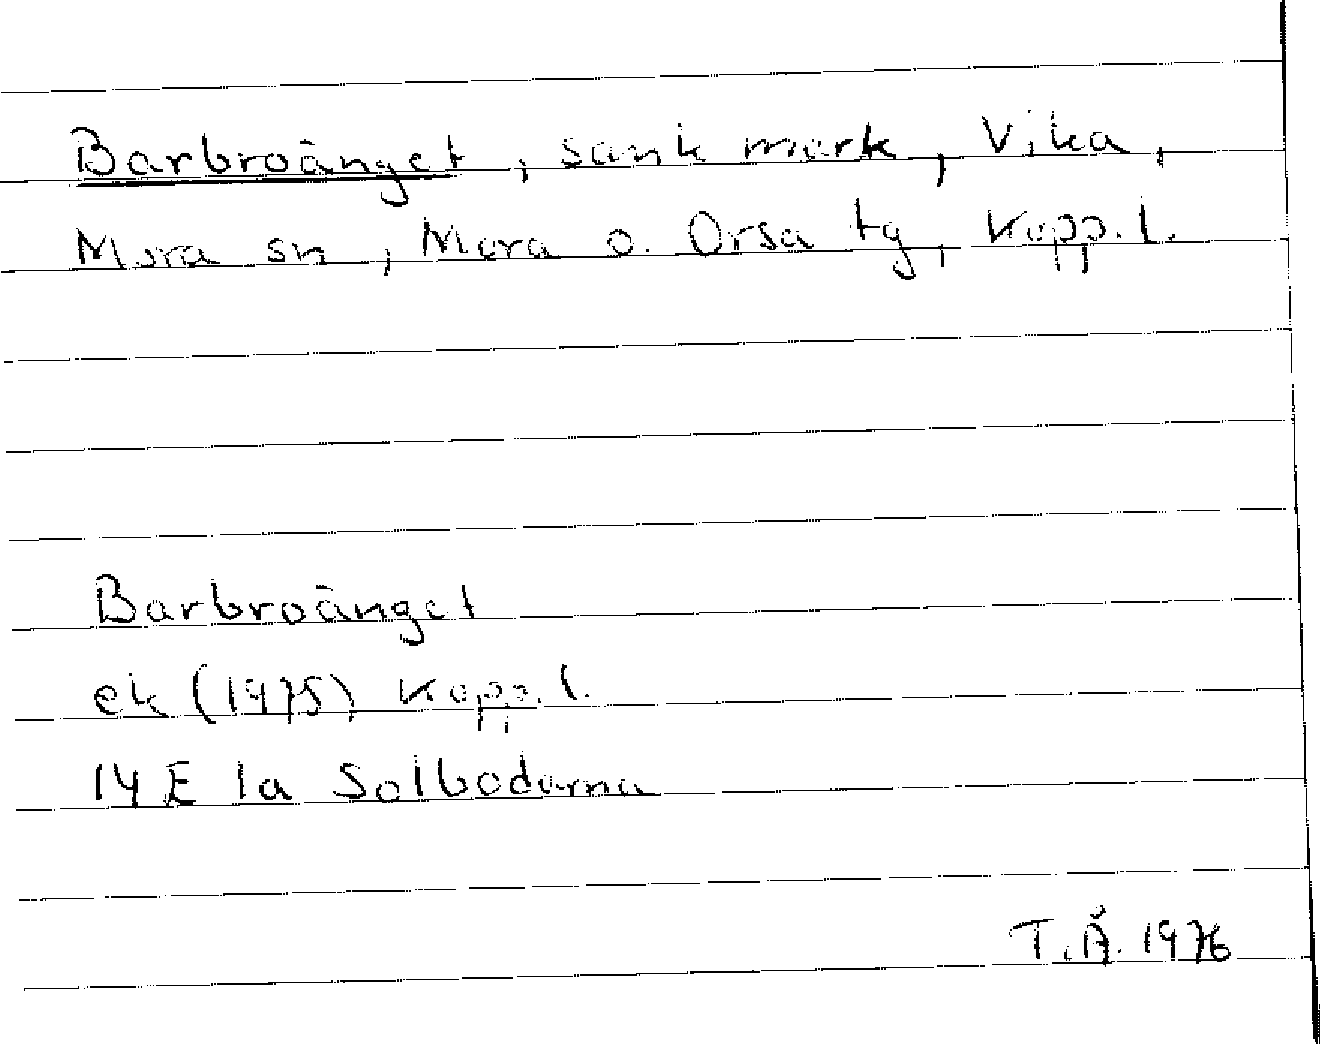 Barbroänget, sank mark, Vika,
Mora sn, Mora o. Orsa tg, Kopp. l.
Barbroänget
ek (1975) Kopp. l.
14 E 1a Solbodarna
T.Å. 1976